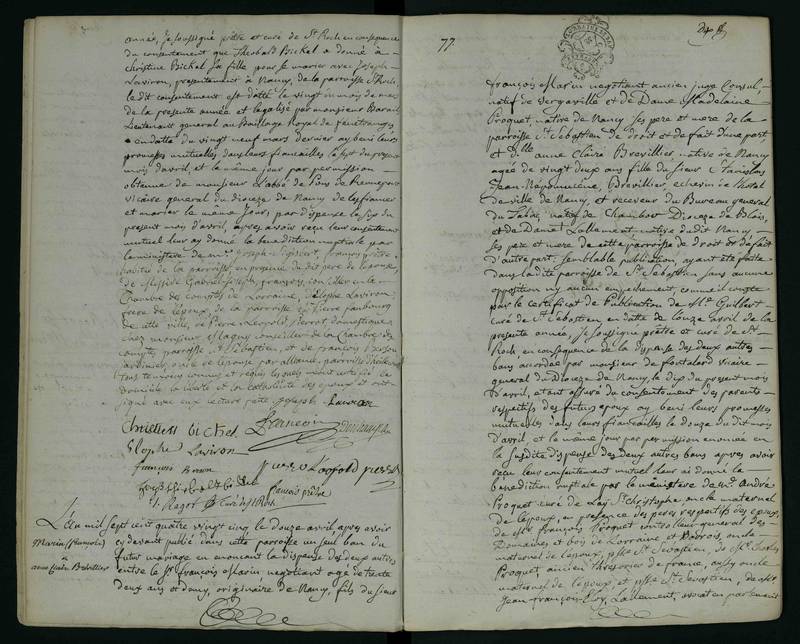 année, je soussigné prêtre et curé de St Roch en consequence
du consentement que Théobald Bickel a donné à
Christine Bickel sa fille pour se marier avec Joseph
Laviron, presentement à Nancy, de la parroisse St Roch,
le dit consentement est datté le vingt mois de mars
de la presente année et legalisé par monsieur Barail
Lieutenant general au Bailliage Royal de fenetranges
en datte du vingt neuf mars dernier ay beni leurs
promesses mutuelles dans leurs fiancailles le sept du present
mois d'avril, et le même jour par permission
obtenue de monsieur L'abbé de
vicaire general du dioceze de Nancy de les fiancer
et marier le meme jour, par dispense le six du
present mois d'avril, apres avoir reçu leur consentement
mutuel leur ay donné la benediction nuptiale par
le ministere de mr. Joseph françois prêtre
habitué de la parroisse, en presence du dit pere de l'epouse,
de Messire Gabriel Joseph françois, conseiller en la
Chambre des comptes de Lorraine, d'Elophe Laviron
frere de l'epoux, de la parroisse St Pierre faubourg
de cette ville, de Pierre Leopold Perrot, domestique
chez monsieur Magny conseiller de la Chambre des
comptes, parroisse St Sebastien, et de françois
jardinier, oncle de l'epouse par alliance, parroisse
tous temoins connus et requis lesquels m'ont certifié le
domicile la liberté et la catholicité des epoux et ont
signé avec eux lecture faite Joseph Laviron
Christien bickel françois
Elophe Laviron
françois pierre Léopold perrot
françois prêtre
J. Ragot Curé de St Roch
Marin (françois)
à
anne Claire Brevillier
L'an mil sept cent quatre vingt cinq le douze avril apres avoir
cy devant publié dans cette parroisse un seul ban du
futur mariage en enoncant la dispense des deux autres
entre le Sr. françois Marin, negotiant agé de trente
deux ans et demy, originaire de Nancy, fils du Sieur
77
françois Marin negotiant ancien juge Consul,
natif de Vergaville et de Dame Madelaine
Proquet, native de Nancy ses pere et mere de la
parroisse St Sebastien de droit et de fait d'une part,
et Dlle anne Claire Brevillier native de Nancy
agée de vingt deux ans fille du Sieur Stanislas
Jean Népomucène Brevillier, echevin à l'hotel
de ville de Nancy, et receveur du Bureau general
du Tabac, natif de Chambor Dioceze de Blois,
et de Dame Lallement native dudit Nancy
ses pere et mere de cette parroisse de droit et de fait
d'autre part; semblable publication, ayant été faite
dans ladite parroisse de St Sebastien sans aucune
opposition ny aucun empechement, comme il conste
par le certificat de Publication de Mr. Guilbert
curé de St Sebastien en datte de l'onze avril de la
presente année, je soussigné prêtre et curé de St
Roch en consequence de la dispense des deux autres
bans accordée par monsieur de Pontalard vicaire
general du Dioceze de Nancy, le dix du present mois
d'avril, etant assuré du consentement des parents
respectifs des futurs epoux ay beni leurs promesses
mutuelles dans leurs fiancailles le douze du dit mois
d'avril, et le meme jour par permission enoncée en
la susdite dispense des deux autres bans apres avoir
reçu leur consentement mutuel leur ai donné la
benediction nuptiale par le ministere de Mr. andré
Proquet curé de Lay St Christophe oncle maternel
de l'epoux, en presence des peres respectifs des epoux,
de Mr. françois Proquet controlleur general des
Domaines et bois de Lorraine et Barrois, oncle
maternel de l'epoux, psse St Sevastien, de Mr. Charles
Proquet, ancien thresorier de france, aussy oncle
maternel de l'epoux, et psse St Sevastien, de Mr.
Jean françois Lallement, avocat en parlement